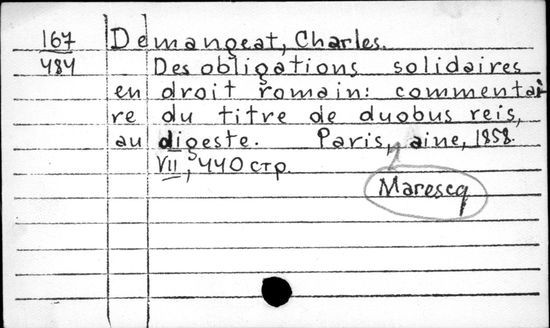 167 Demangeat, Charles.
484 Des obligations solidaires
en droit romain: commentai
re du titre de duobus reis,
au digeste. Paris, aine, 1858.
VII, 440 стр.
Marescq